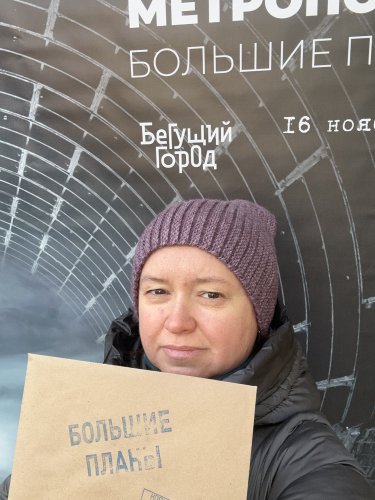 МЕТРОПО
БОЛЬШИЕ П
БеГУЩий
ГОРОД
16 ноя
БОЛЬШИЕ
ПЛАНЫ